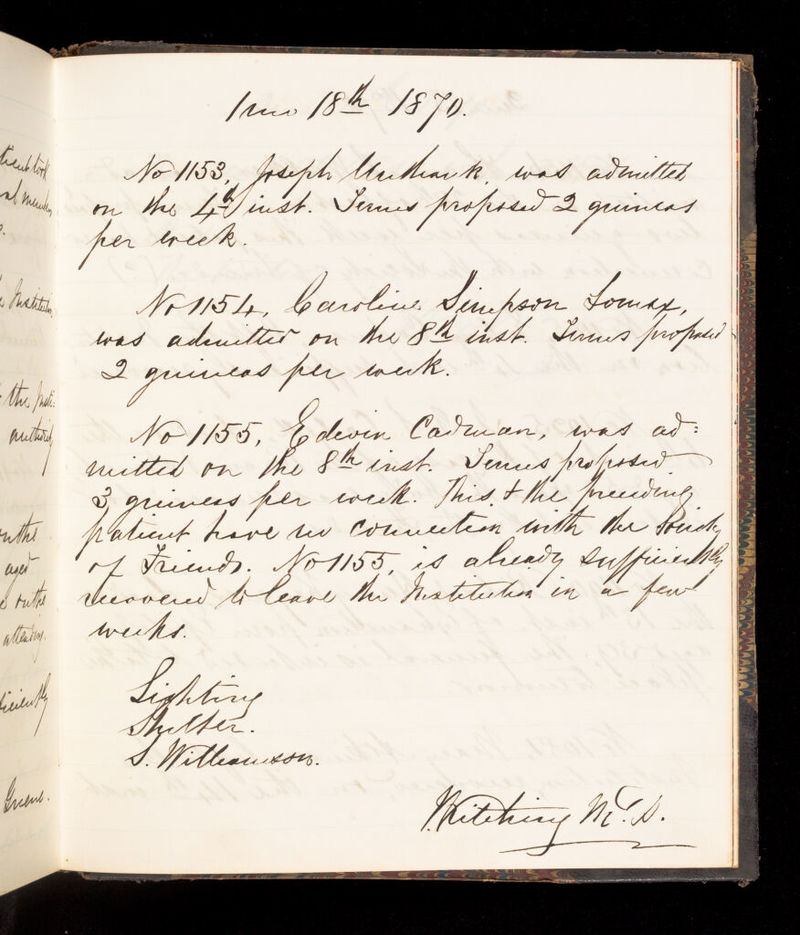 tient took
al member
Institution
the
authority
on the
aged
on the
attending.
ficiently
Greene.
1 mo 18th 1870.
No 1153, Joseph Unthank, was admitted
on the 4th inst. Terms proposed 2 guineas
per week.
No 1154, Caroline Simpson Lomax,
was admitted on the 8th inst. Terms proposed
2 guineas per week.
No 1155, Edwin Cadman, was ad:
mitted on the 8th inst. Terms proposed
3 guineas per week. This & the preceding
patient have no connection with the Society
of Friends. No 1155, is already sufficiently
recovered to leave the Institution in a few
weeks.
Lighting
Shutter.
S. Williamson.
J. Kitching M.D.